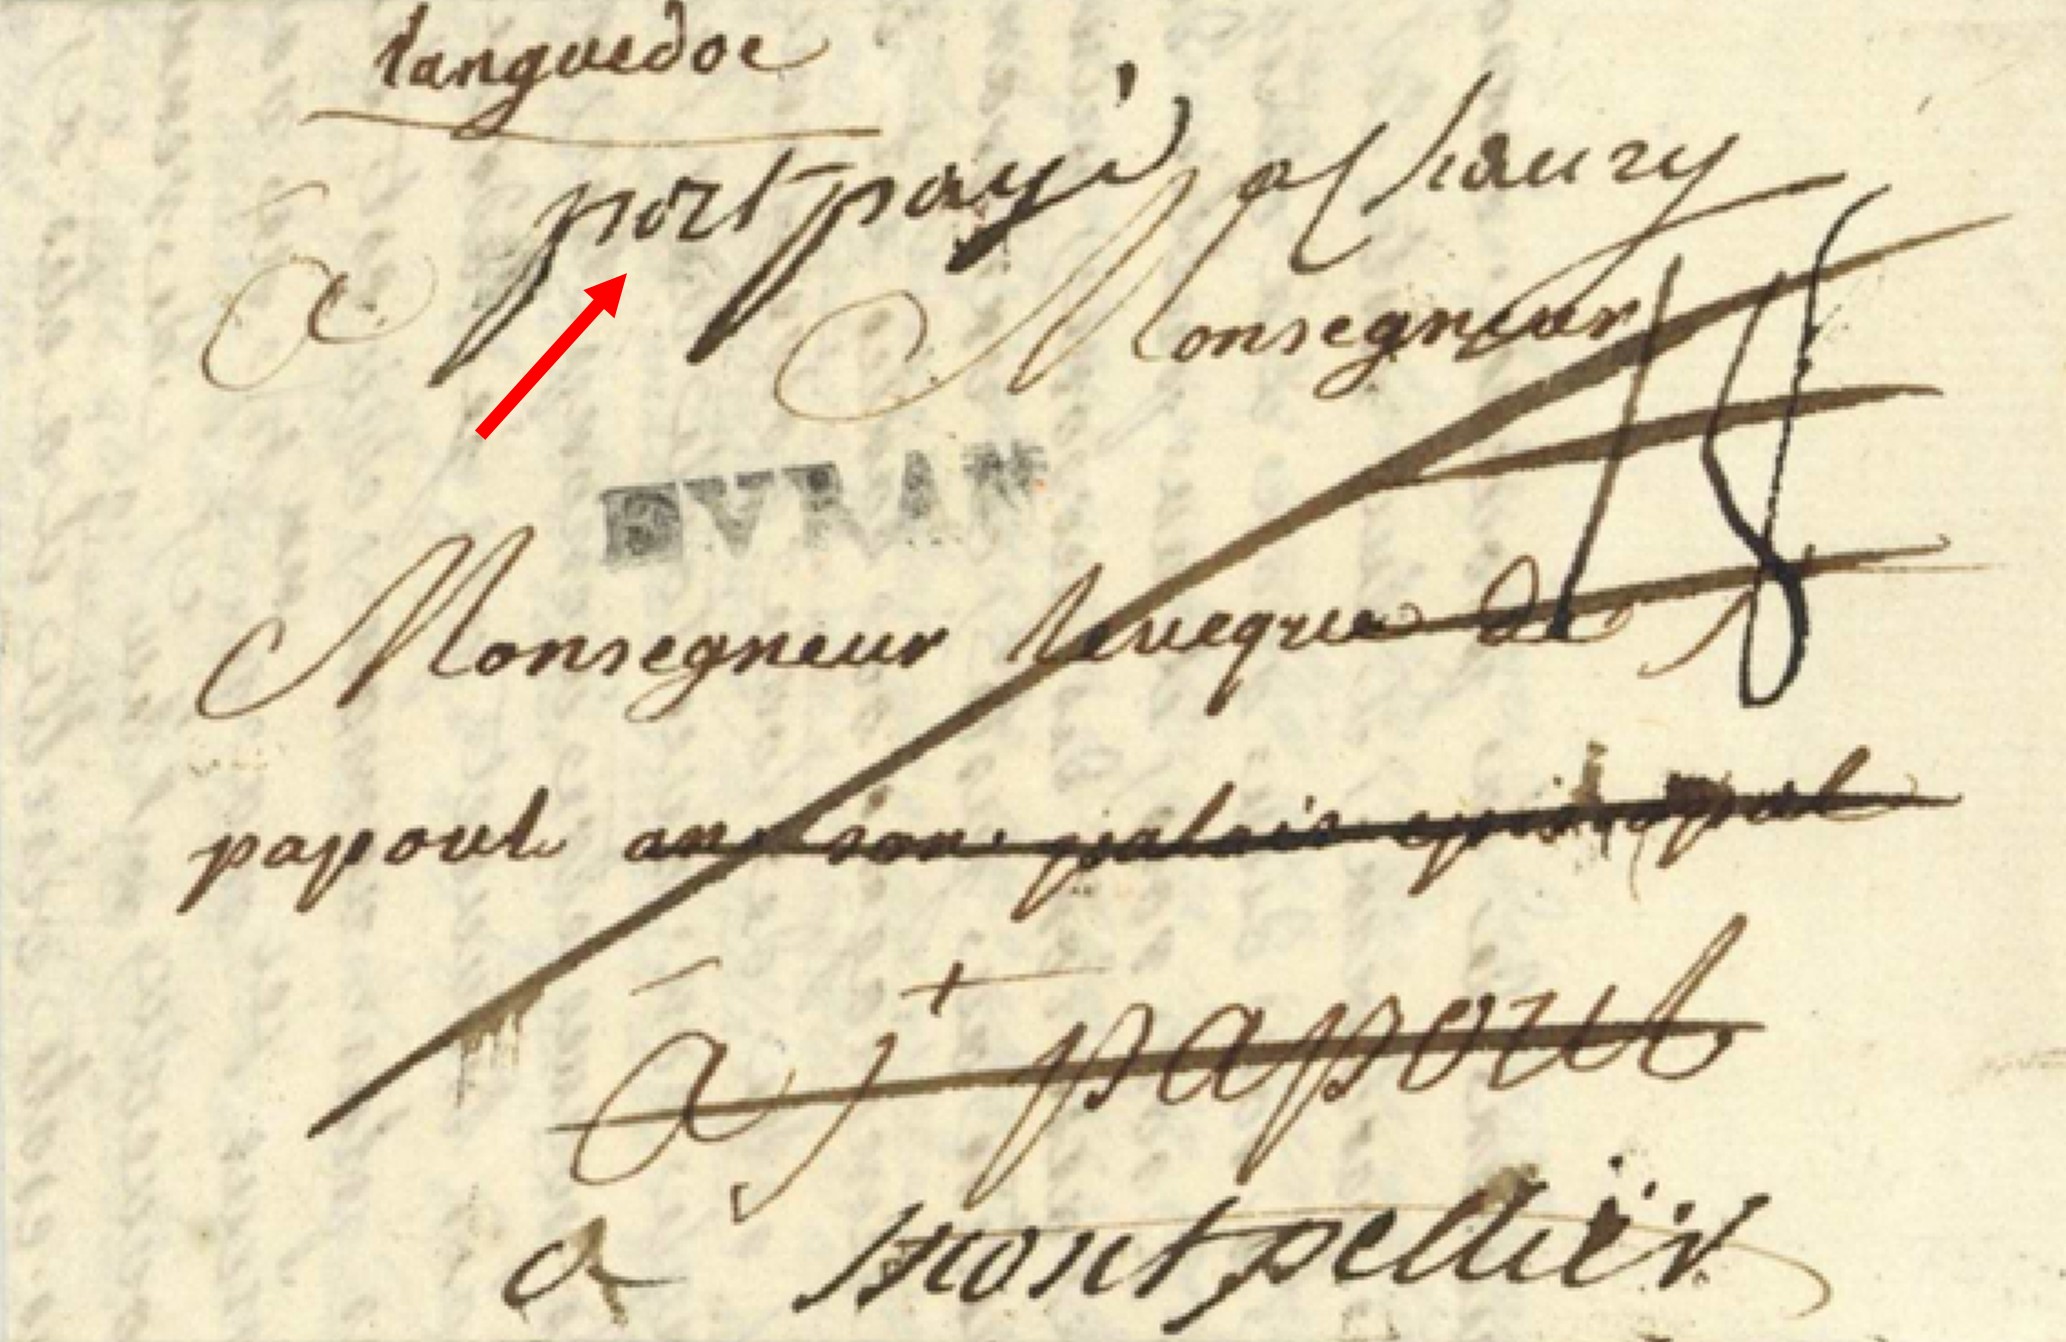 languedoc
port payé
a Monsegneur
EVRAN
Monsegneur leveque de st
papoul an son palais episcopal
a st papoul
a montpellier
18